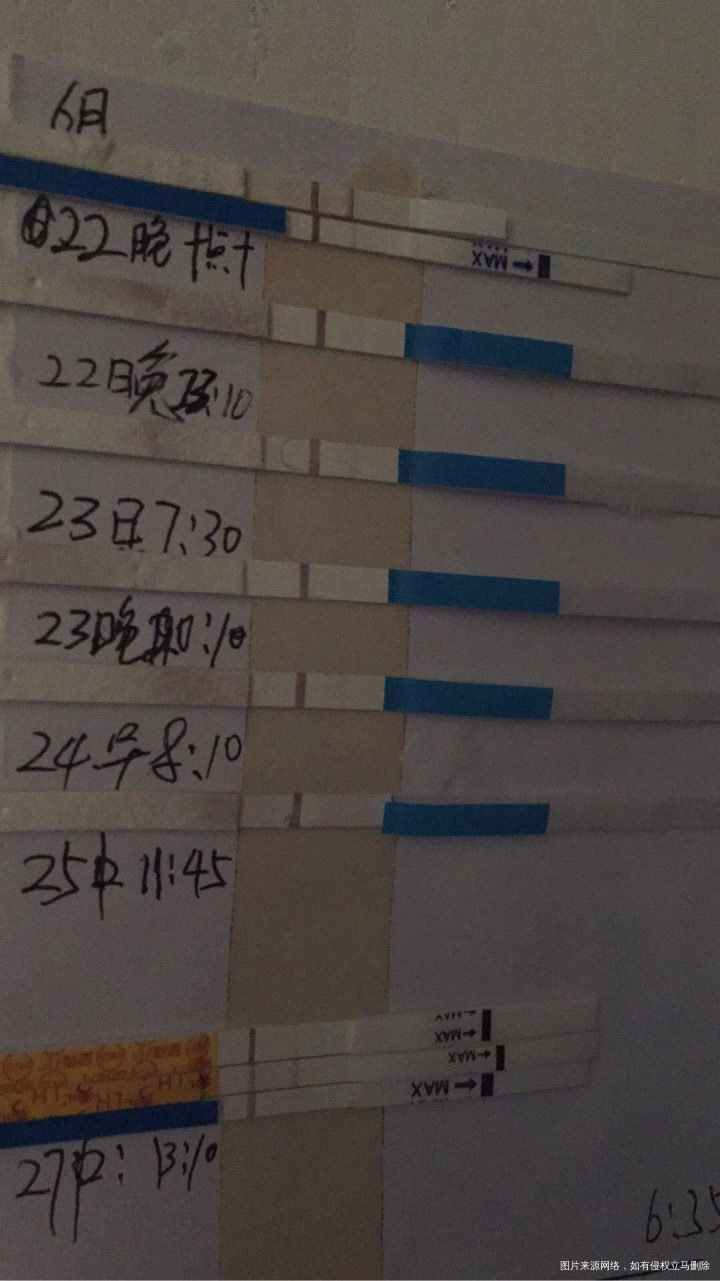 6月
22晚十点十
MAX
22日晚:10
23日7:30
23晚:10
24早8:10
25中11:45
MAX
MAX
MAX
LH LH LH
27中:13:10
6:35
图片来源网络，如有侵权立马删除